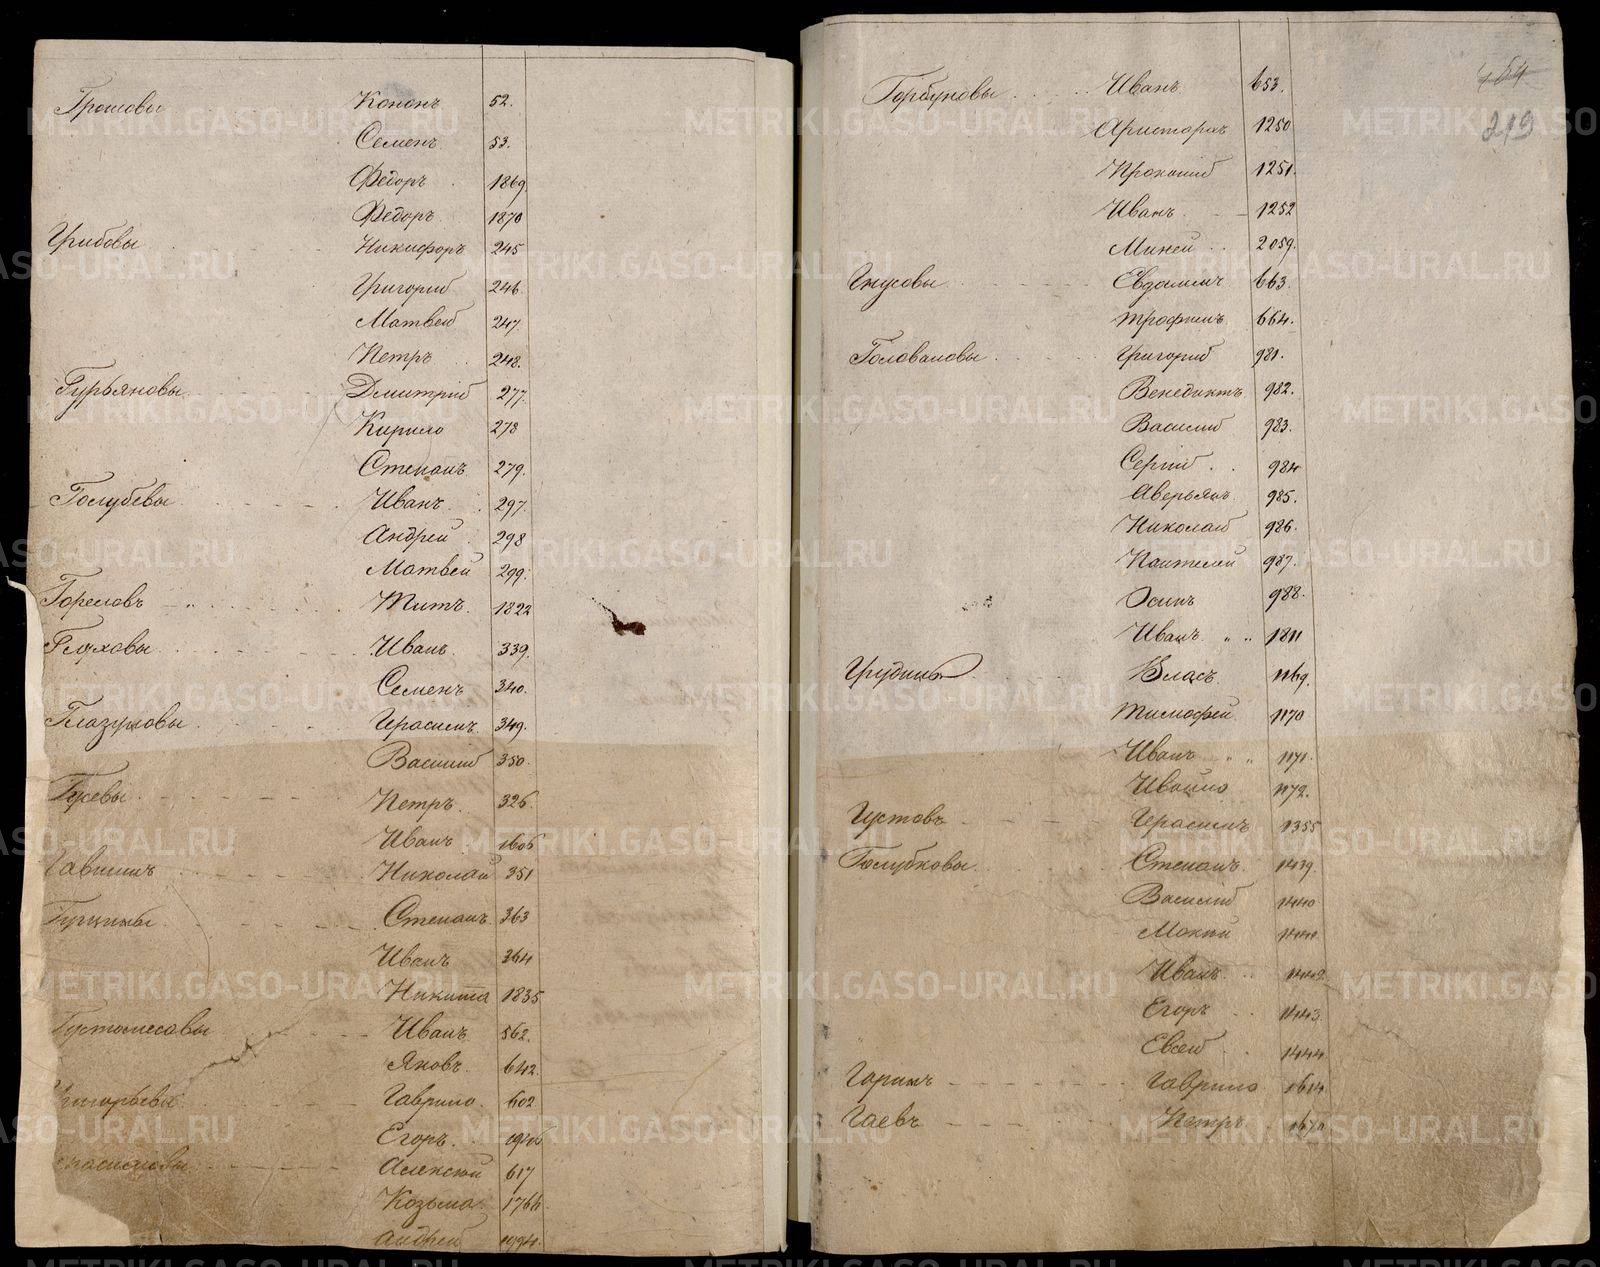 Грошовы Кононъ 52.
Семенъ 53.
Федоръ 1869.
Федоръ 1870
Грибовы Никифоръ 245
Григорій 246
Матвей 247
Петръ 248.
Гурьяновы Дмитрій 277.
Кирило 278
Степанъ 279.
Голубевы Иванъ 297.
Андрей 298
Матвей 299.
Гореловъ Титъ 1822
Глуховы Иванъ 339.
Семенъ 340.
Глазуновы Герасимъ 349.
Василій 350.
Гусевы Петръ 326.
Иванъ 1606
Гавшинъ Николай 351
Гущины Степанъ 363
Иванъ 364
Никита 1835
Густомесовы Иванъ 562.
Яковъ 642.
Григорьевы Гаврило 602
Егоръ
Алексей 617
Козьма 1766
Андрей 1994.
464
219
Горбуновы Иванъ 653.
Аристархъ 1250
Прокопій 1251.
Иванъ 1252
Миней 2059.
Гнусовы Евдокимъ 663.
Трофимъ 664.
Головановы Григорій 981.
Венедиктъ 982.
Василій 983.
Сергій 984
Аверьянъ 985.
Николай 986.
Пантелей 987.
Осипъ 988.
Иванъ 1811
Грудины Власъ 1169.
Тимофей 1170
Иванъ 1171.
Ивойло 1172.
Густовъ Герасимъ 1355
Голубковы Степанъ 1439.
Василій 1440
Мокий 1441
Иванъ 1442.
Егоръ 1443.
Евсей 1444
Горинъ Гаврило 1614
Гаевъ Петръ 1670